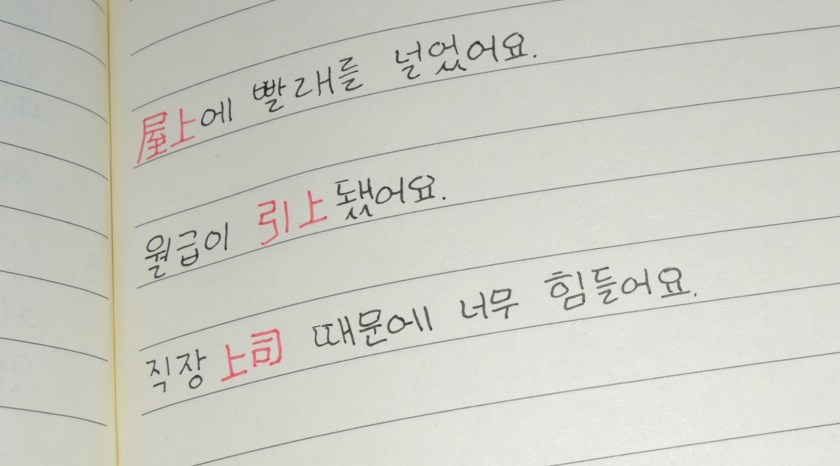 屋上에 빨래를 널었어요.
월급이 引上됐어요.
직장 上司 때문에 너무 힘들어요.